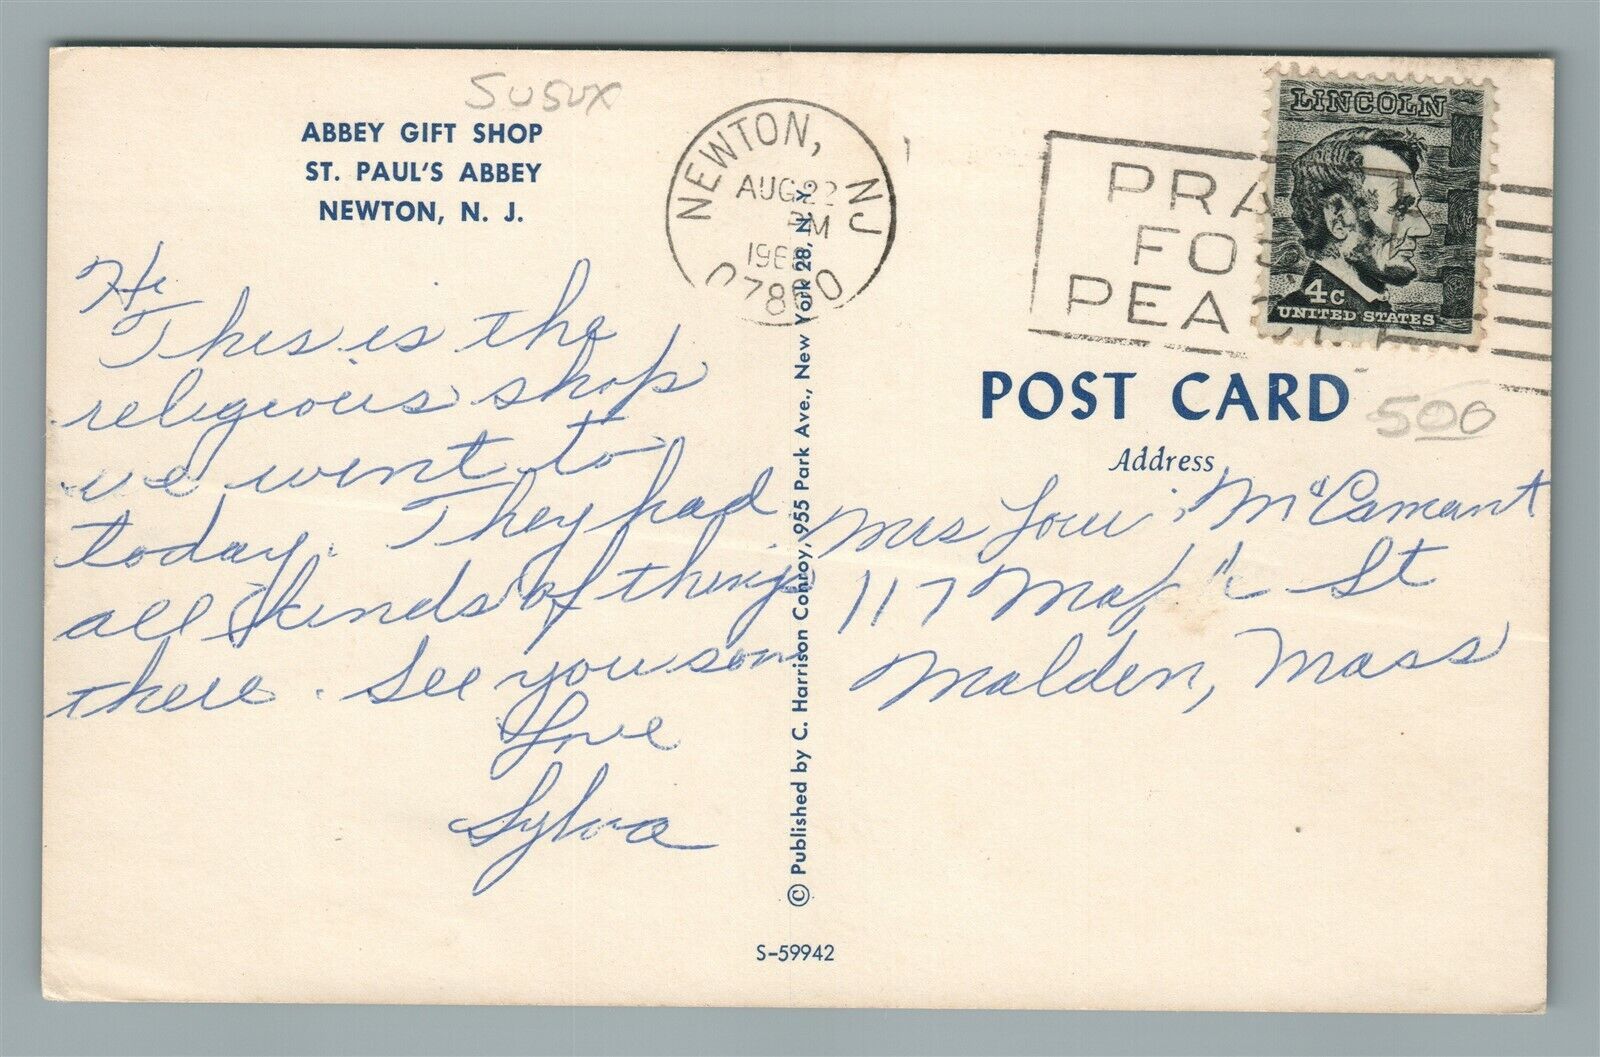 Susux
ABBEY GIFT SHOP
ST. PAUL'S ABBEY
NEWTON, N. J.
Hi
This is the
religious shop
we went to
today. They had
all kinds of things
there. See you soon
Love
Sylvia
NEWTON, NJ
AUG 22
PM
196
07860
© Published by C. Harrison Conroy, 955 Park Ave., New York 28, N. Y.
S-59942
PRAY
FOR
PEACE
LINCOLN
4c
UNITED STATES
POST CARD
500
Address
Mrs McCamant
117 Maple St
Malden, Mass